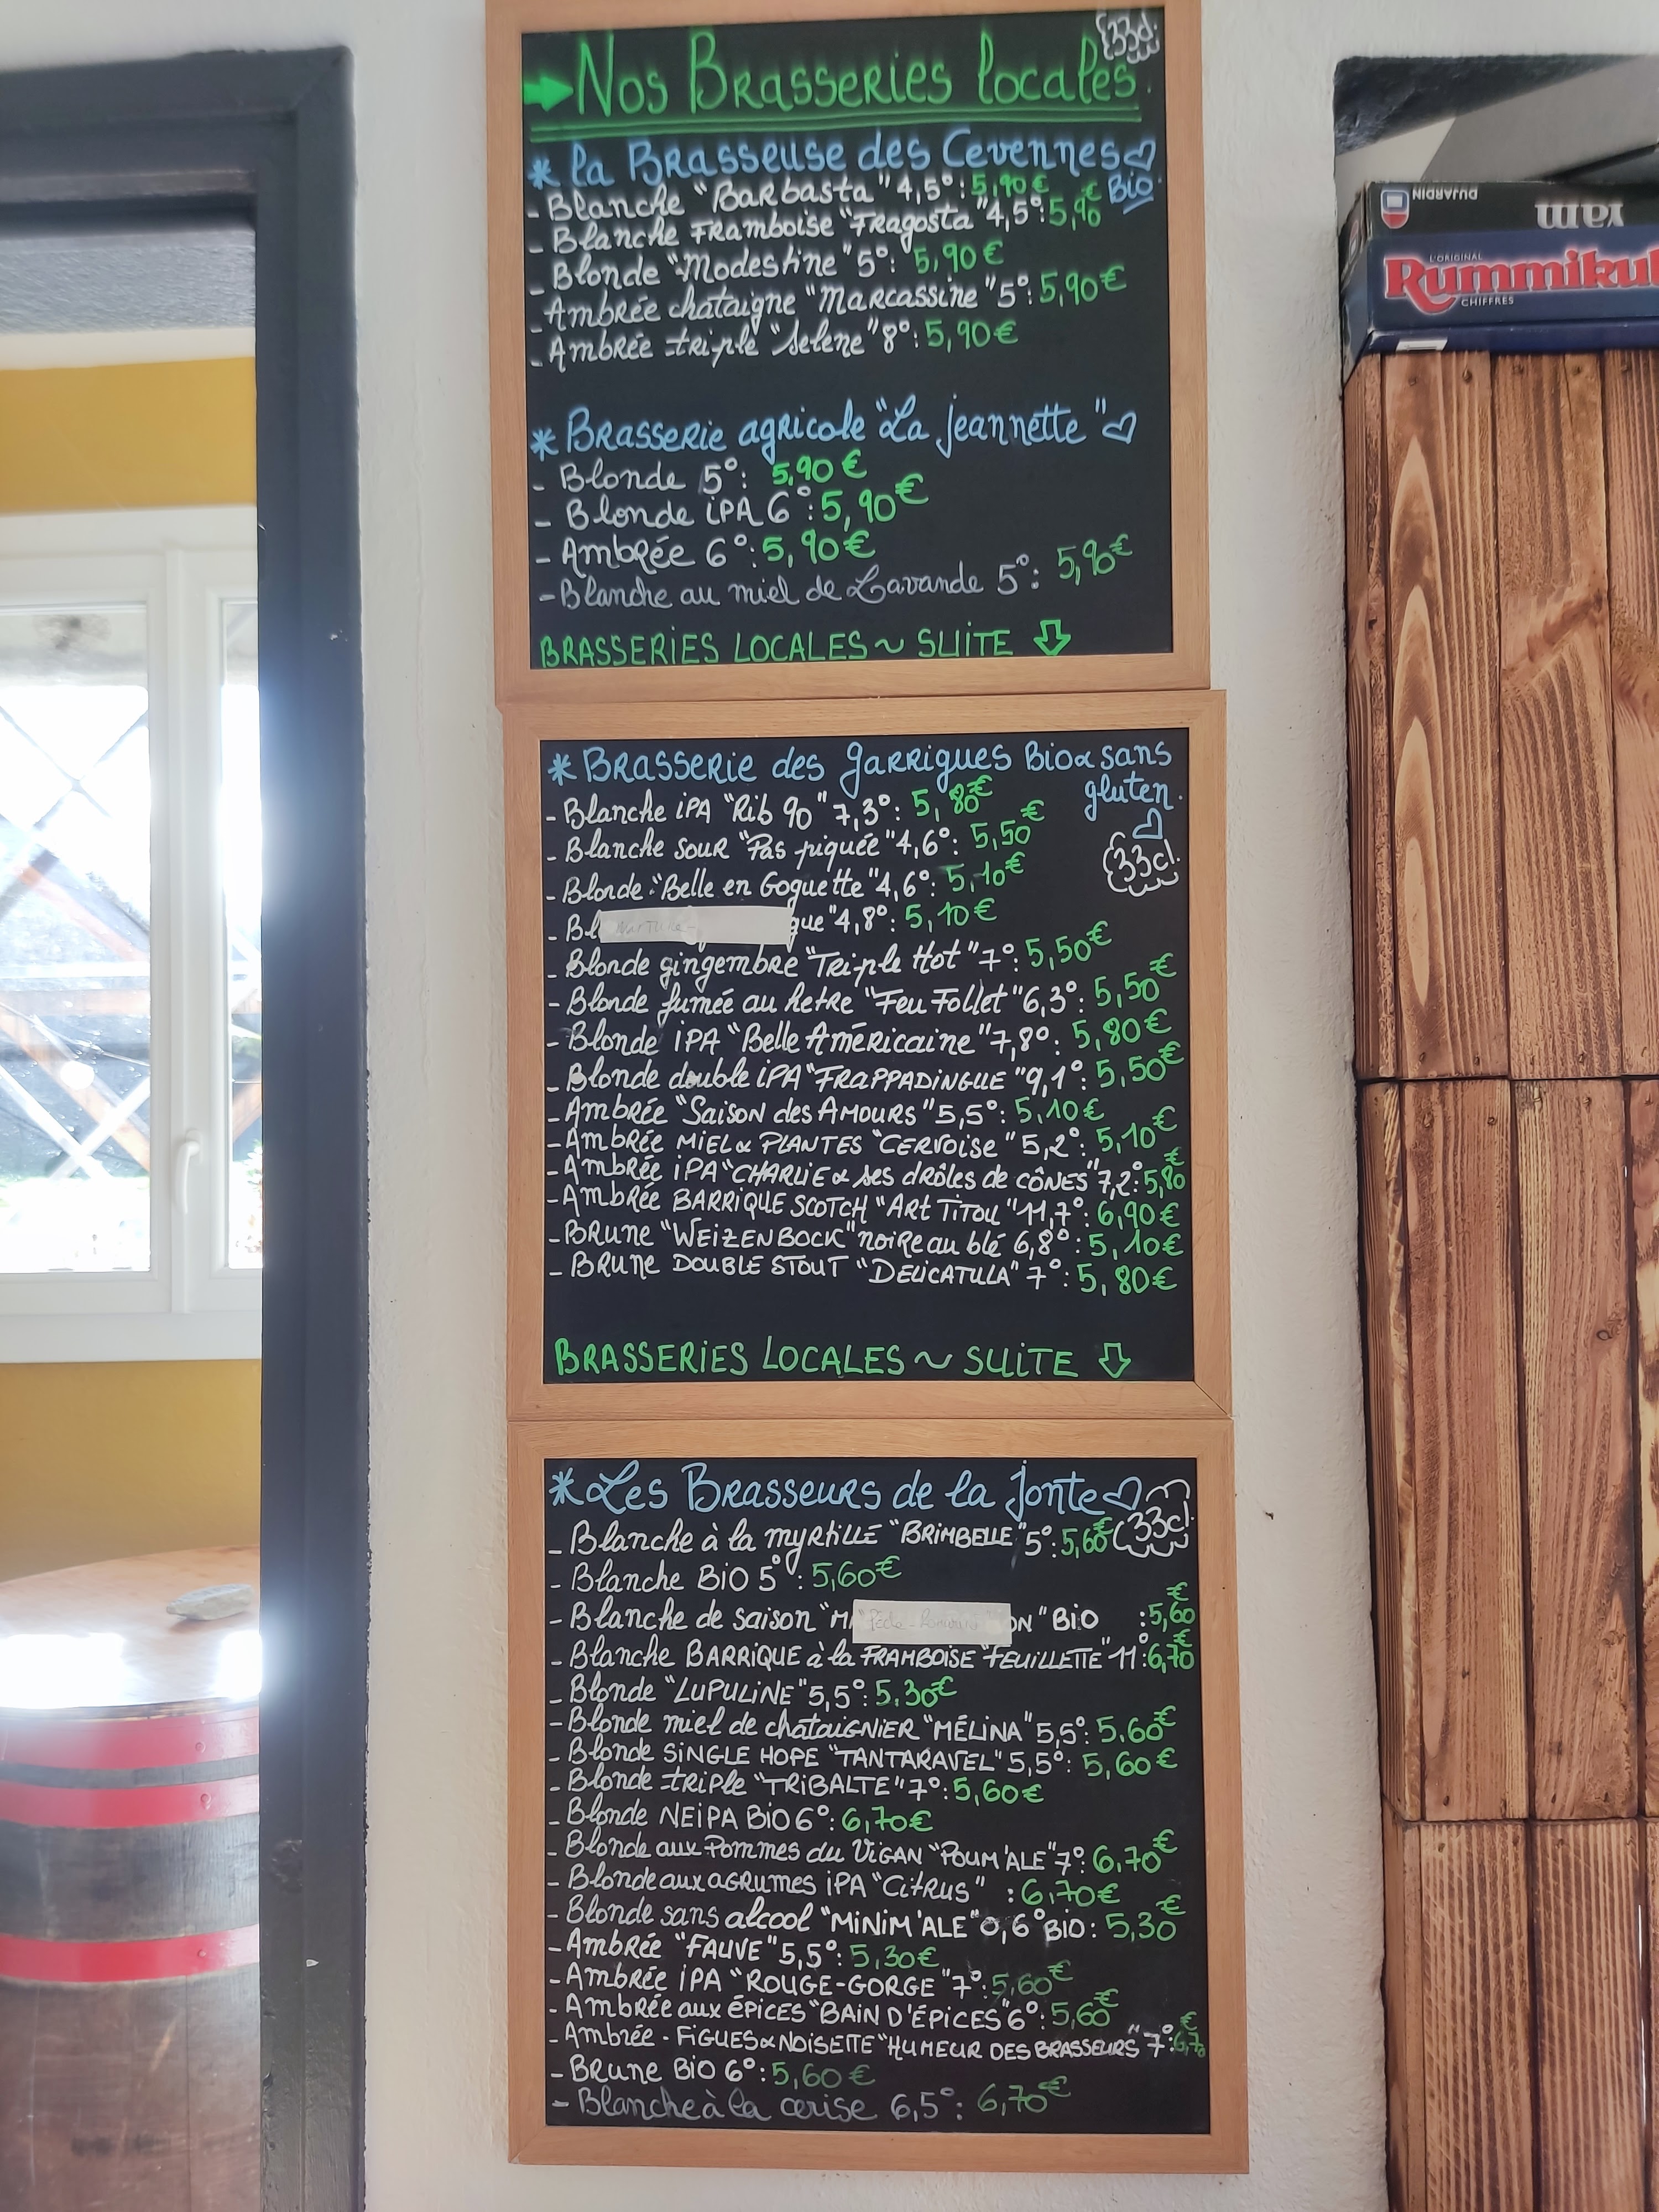 33cl
Nos Brasseries locales
* la Brasseuse des Cevennes
Bio
- Blanche "Barbasta" 4,5°: 5,90€
- Blanche Framboise "Fragosta" 4,5°: 5,90€
- Blonde "Modestine" 5°: 5,90€
- Ambrée chataigne "Marcassine" 5°: 5,90€
- Ambrée triple "Selene" 8°: 5,90€
* Brasserie agricole "La jeannette"
- Blonde 5°: 5,90€
- Blonde iPA 6°: 5,90€
- Ambrée 6°: 5,90€
- Blanche au miel de Lavande 5°: 5,90€
BRASSERIES LOCALES ~ SUITE
* Brasserie des garrigues Bio & sans
gluten.
33cl.
- Blanche iPA "Rib 90" 7,3°: 5,80€
- Blanche sour "Pas piquée" 4,6°: 5,50€
- Blonde: "Belle en Goguette" 4,6°: 5,10€
- Bl que" 4,8°: 5,10€
- Blonde gingembre "Triple Hot" 7°: 5,50€
- Blonde fumée au hetre "Feu Follet" 6,3°: 5,50€
- Blonde iPA "Belle Américaine" 7,8°: 5,80€
- Blonde double iPA "FRAPPADINGUE" 9,1°: 5,50€
- Ambrée "Saison des Amours" 5,5°: 5,10€
- Ambrée MIEL & PLANTES "CERVOISE" 5,2°: 5,10€
- Ambrée iPA "CHARLIE & ses drôles de cônes" 7,2: 5,80€
- Ambrée BARRIQUE SCOTCH "Art Titou" 11,7°: 6,90€
- Brune "WEIZENBOCK" noire au blé 6,8°: 5,10€
- Brune DOUBLE STOUT "DELICATULA" 7°: 5,80€
BRASSERIES LOCALES ~ SUITE
* Les Brasseurs de la Jonte
33cl.
- Blanche à la myrtille "BRIMBELLE" 5°: 5,60€
- Blanche Bio 5°: 5,60€
- Blanche de saison "M ON" Bio : 5,60€
- Blanche BARRIQUE à la FRAMBOISE "FEUILLETTE" 11°: 6,70€
- Blonde "LUPULINE" 5,5°: 5.30€
- Blonde miel de chataignier "MÉLINA" 5,5°: 5.60€
- Blonde SINGLE HOPE "TANTARAVEL" 5,5°: 5,60€
- Blonde triple "TRIBALTE" 7°: 5,60€
- Blonde NEIPA Bio 6°: 6,70€
- Blonde aux Pommes du Vigan "POUM'ALE" 7°: 6.70€
- Blonde aux agrumes iPA "CitRus" : 6,70€
- Blonde sans alcool "MINIM'ALE" 0,6° Bio: 5,30€
- Ambrée "FAUVE" 5,5°: 5,30€
- Ambrée iPA "ROUGE-GORGE" 7°: 5,60€
- Ambrée aux épices "BAIN D'ÉPICES" 6°: 5,60€
- Ambrée - FIGUES & NOISETTE "HUMEUR DES BRASSEURS" 7°: 6,70€
- Brune Bio 6°: 5,60€
- Blanche à la cerise 6,5°: 6,70€
DUJARDIN
YAM
L'ORIGINAL
Rummikub
CHIFFRES